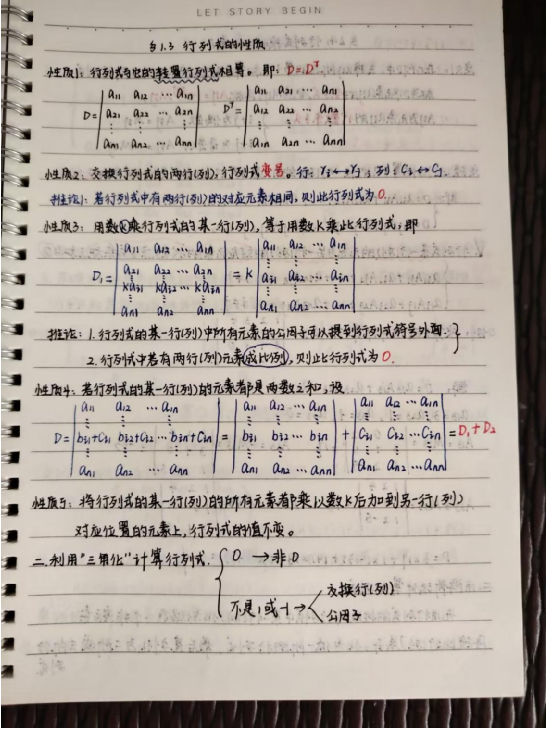 LET STORY BEGIN
§1.3 行列式的性质
性质1: 行列式与它的转置行列式相等。即: D=Dᵀ
D=
a₁₁ a₁₂ ··· a₁ₙ
a₂₁ a₂₂ ··· a₂ₙ
⋮ ⋮ ⋮
aₙ₁ aₙ₂ ··· aₙₙ
Dᵀ=
a₁₁ a₂₁ ··· aₙ₁
a₁₂ a₂₂ ··· aₙ₂
⋮ ⋮ ⋮
a₁ₙ a₂ₙ ··· aₙₙ
性质2: 交换行列式的两行(列),行列式变号。行: rᵢ↔rⱼ, 列: cᵢ↔cⱼ
推论1: 若行列式中有两行(列)的对应元素相同,则此行列式为0.
性质3: 用数k乘行列式的某一行(列),等于用数k乘此行列式,即
D₁=
a₁₁ a₁₂ ··· a₁ₙ
⋮ ⋮ ⋮
a₂₁ a₂₂ ··· a₂ₙ
kaᵢ₁ kaᵢ₂ ··· kaᵢₙ
⋮ ⋮ ⋮
aₙ₁ aₙ₂ ··· aₙₙ
=k
a₁₁ a₁₂ ··· a₁ₙ
⋮ ⋮ ⋮
aᵢ₁ aᵢ₂ ··· aᵢₙ
⋮ ⋮ ⋮
aₙ₁ aₙ₂ ··· aₙₙ
推论: 1.行列式的某一行(列)中所有元素的公因子可以提到行列式符号外面.
2.行列式中若有两行(列)元素成比例,则此行列式为0.
性质4: 若行列式的某一行(列)的元素都是两数之和,设
D=
a₁₁ a₁₂ ··· a₁ₙ
⋮ ⋮ ⋮
bᵢ₁+cᵢ₁ bᵢ₂+cᵢ₂ ··· bᵢₙ+cᵢₙ
⋮ ⋮ ⋮
aₙ₁ aₙ₂ ··· aₙₙ
=
a₁₁ a₁₂ ··· a₁ₙ
⋮ ⋮ ⋮
bᵢ₁ bᵢ₂ ··· bᵢₙ
⋮ ⋮ ⋮
aₙ₁ aₙ₂ ··· aₙₙ
+
a₁₁ a₁₂ ··· a₁ₙ
⋮ ⋮ ⋮
cᵢ₁ cᵢ₂ ··· cᵢₙ
⋮ ⋮ ⋮
aₙ₁ aₙ₂ ··· aₙₙ
=D₁+D₂
性质5: 将行列式的某一行(列)的所有元素都乘以数k后加到另一行(列)
对应位置的元素上,行列式的值不变。
二.利用"三角化"计算行列式.
0 → 非0
不是1或-1 →
交换行(列)
公因子